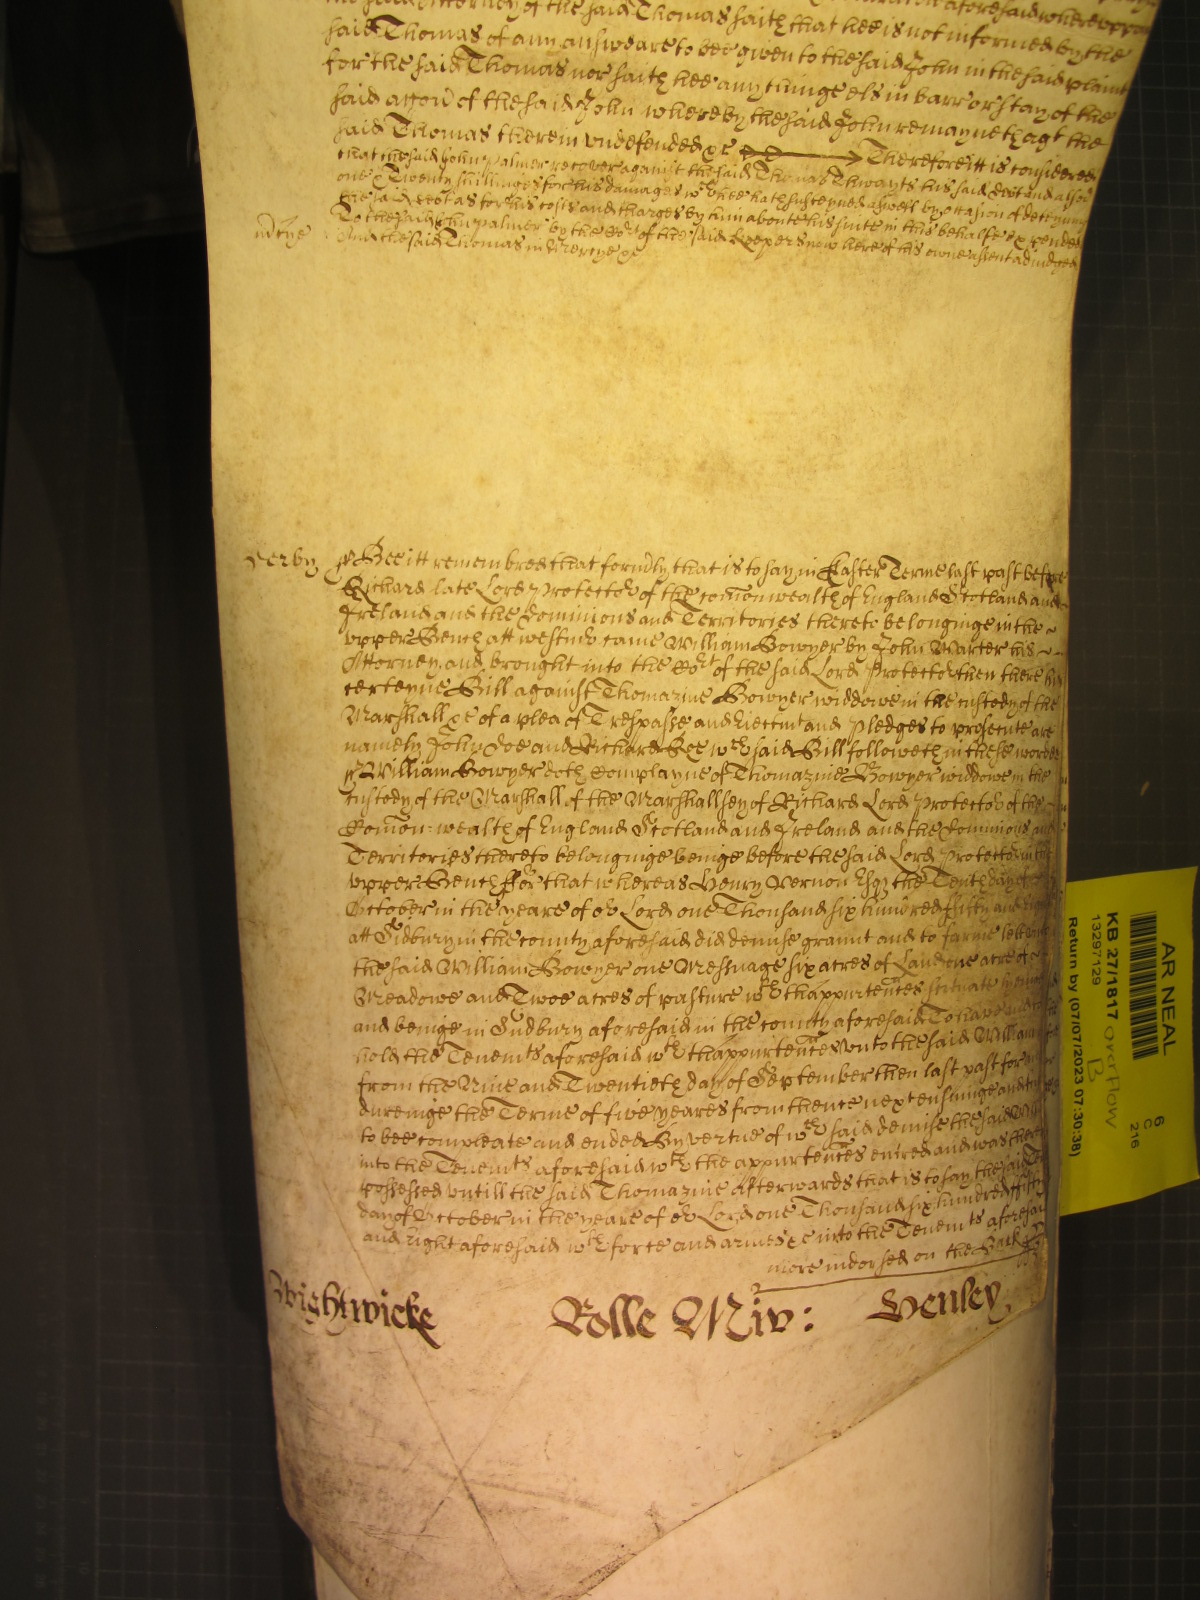 the said Attorney of the said Thomas saith that hee is not informed by the
said Thomas of any answeare to bee given to the said John in the said plaint
for the said Thomas nor saith hee any thinge els in barr or stay of the
said accon of the said John whereby the said John remayneth agt the
said Thomas therein undefended &c Therefore itt is considered
that the said John Palmer recover against the said Thomas Thwayts his said debt and alsoe
one & Twenty shillinges for his damages wch hee hath susteyned aswell by occasion of deteyning
the said debt as for his costs and charges by him aboute his suite in this behalfe expended
To the said John Palmer by the Cort of the said keepers now here of his owne assent adiudged
And the said Thomas in Mercye &c
m̄cye
Derby
Bee itt remembred that form̄ly that is to say in Easter Terme last past before
Richard late Lord Protector of the com̄onwealth of England Scotland and
Ireland and the Dominions and Territories thereto belonginge in the
upper Bench att westm̄r came William Bowyer by John Warter his
Attorney and brought into the Cort of the said Lord Protector then there his
certeyne Bill against Thomazine Bowyer widdowe in the custody of the
Marshall &c of a plea of Trespasse and Eiectmt and Pledges to prosecute are
namely John Doe and Richard Roe wch said Bill followeth in these wordes
William Bowyer doth Complayne of Thomazine Bowyer widdowe in the
custody of the Marshall of the Marshallsey of Richard Lord Protector of the
Com̄on=wealth of England Scotland and Ireland and the Dominions and
Territories thereto belonginge beinge before the said Lord Protector in the
upper Bench For that whereas Henry Vernon Esqr the Tenth day of
October in the yeare of or Lord one Thousand six hundred Fifty and Eight
att Sudbury in the county aforesaid did demise graunt and to farme lett unto
the said William Bowyer one Messuage six acres of Land one acre of
Meadowe and Twoe acres of pasture wth thappurtenn̄ces scituate lyeinge
and beinge in Sudbury aforesaid in the county aforesaid To have and to
hold the Tenemts aforesaid wth thappurtenn̄ces unto the said William
from the Nine and Twentieth day of September then last past for and
dureinge the Terme of five yeares from thence next ensuinge and fully
to bee compleate and ended By vertue of wch said demise the said William
into the Tenemts aforesaid wth the appurtenn̄ces entred and was thereof
possessed untill the said Thomazine Afterwards that is to say the said Tenth
day of October in the yeare of or Lord one Thousand six hundred fifty
and Eight aforesaid wth force and armes &c into the Tenemts aforesaid
more indorsed on the Back
Wightwicke
Rolle Miv:
Henley
AR NEAL
6
C
216
KB 27/1817
overflow
B
13297129
Return by (07/07/2023 07:30:38)